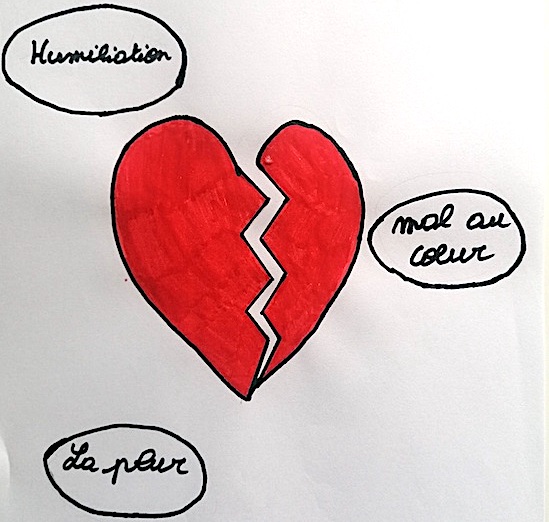 Humiliation
mal au
cœur
La peur